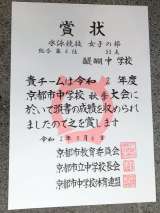 賞状
水泳競技 女子の部
総合第 位
醍醐中学校
貴チームは令和2年度
京都市中学校秋季大会に
於いて頭書の成績を収められ
ましたので之を賞します
令和2年 月 日
京都市教育委員会
京都市立中学校長会
京都市中学校体育連盟